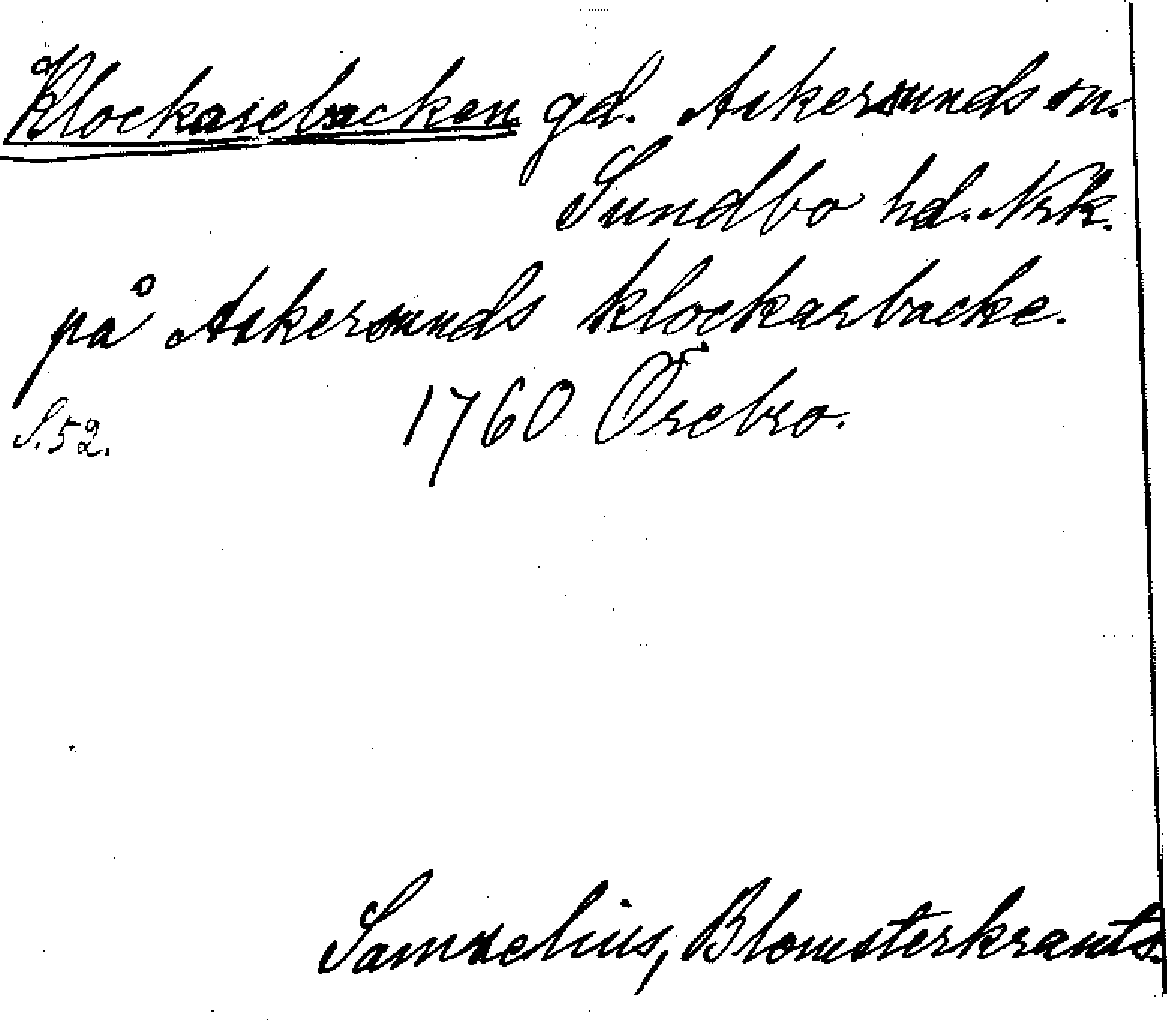 Klockarebacken gd. Askersunds sn.
Sundbo hd. Nrk.
på Askersunds klockarbacke.
S. 52. 1760 Örebro.
Samzelius, Blomsterkrants.